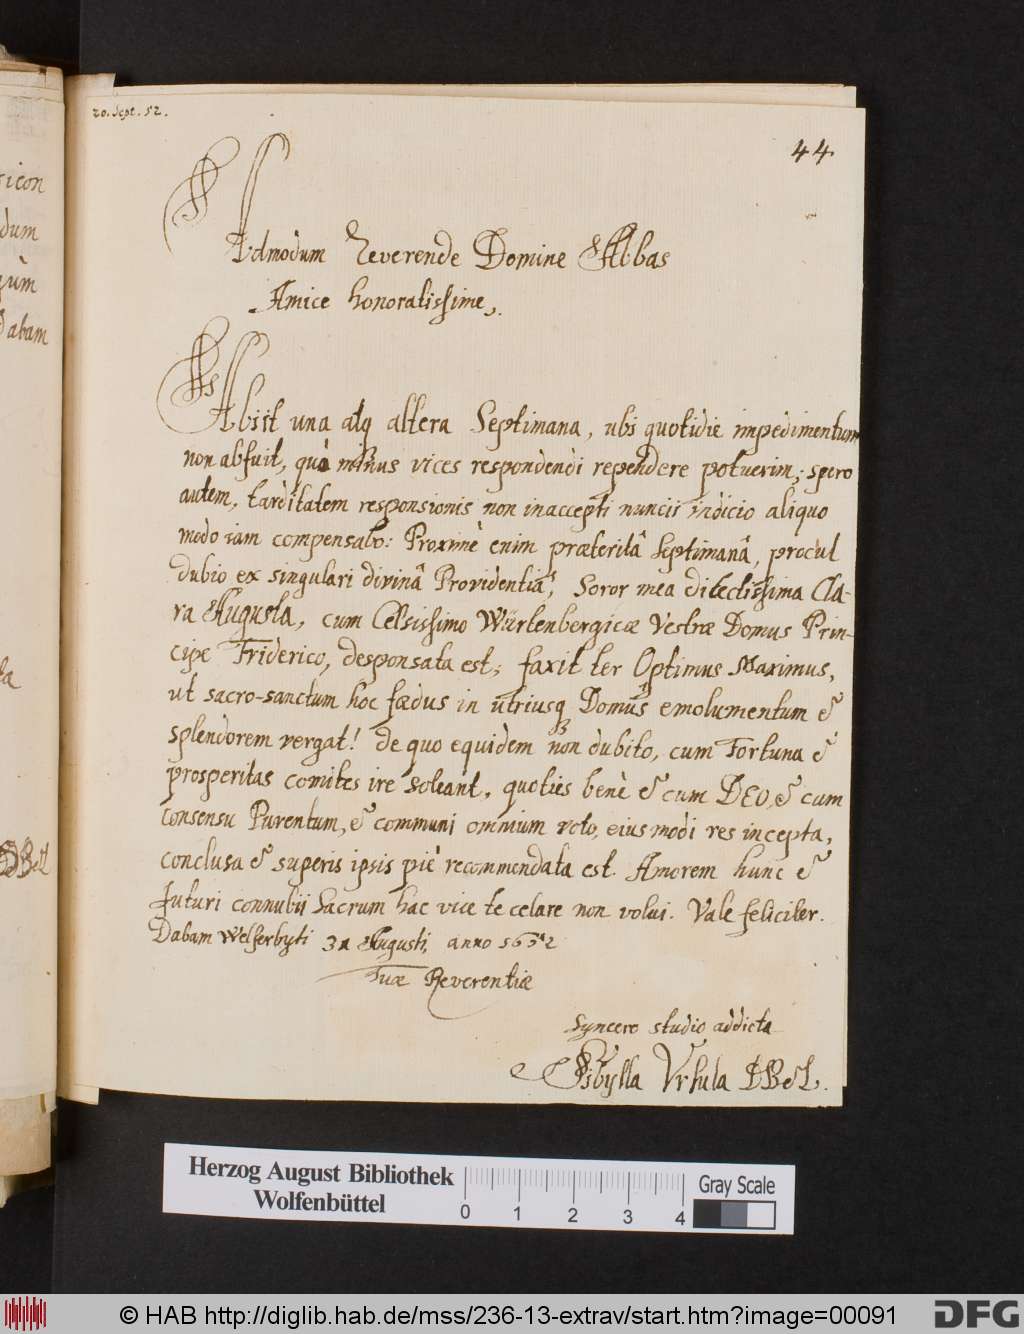 20. Sept. 52.
44
Admodum Reverende Domine Abbas
Amice honoratissime,
Abiit una atq altera Septimana, ubi quotidie impedimentum
non abfuit, quò minus vices respondendi rependere potuerim; spero
autem, tarditatem responsionis non inaccepti nuncii indicio aliquo
modo iam compensabo: Proximè enim præteritâ Septimanâ, procul
dubio ex singulari divinâ Providentiâ, Soror mea dilectissima Cla-
ra Augusta, cum Celsissimo Würtenbergicæ Vestræ Domus Prin-
cipe Friderico, desponsata est; faxit ter Optimus Maximus,
ut sacro-sanctum hoc fœdus in utriusq Domus emolumentum &
splendorem vergat! de quo equidem non dubito, cum Fortuna &
prosperitas comites ire soleant, quoties benè & cum DEO, & cum
consensu Parentum, & communi omnium voto, eiusmodi res incepta,
conclusa & superis ipsis piè recommendata est. Amorem hunc &
futuri connubii Sacrum hac vice te celare non volui. Vale feliciter.
Dabam Welferbyti 31 Augusti, anno 1652
Tuæ Reverentiæ
Syncero studio addicta
Sibylla Ursula DBeL.
sicon
dum
Dabam
Herzog August Bibliothek
Wolfenbüttel
0 1 2 3 4
Gray Scale
© HAB http://diglib.hab.de/mss/236-13-extrav/start.htm?image=00091
DFG